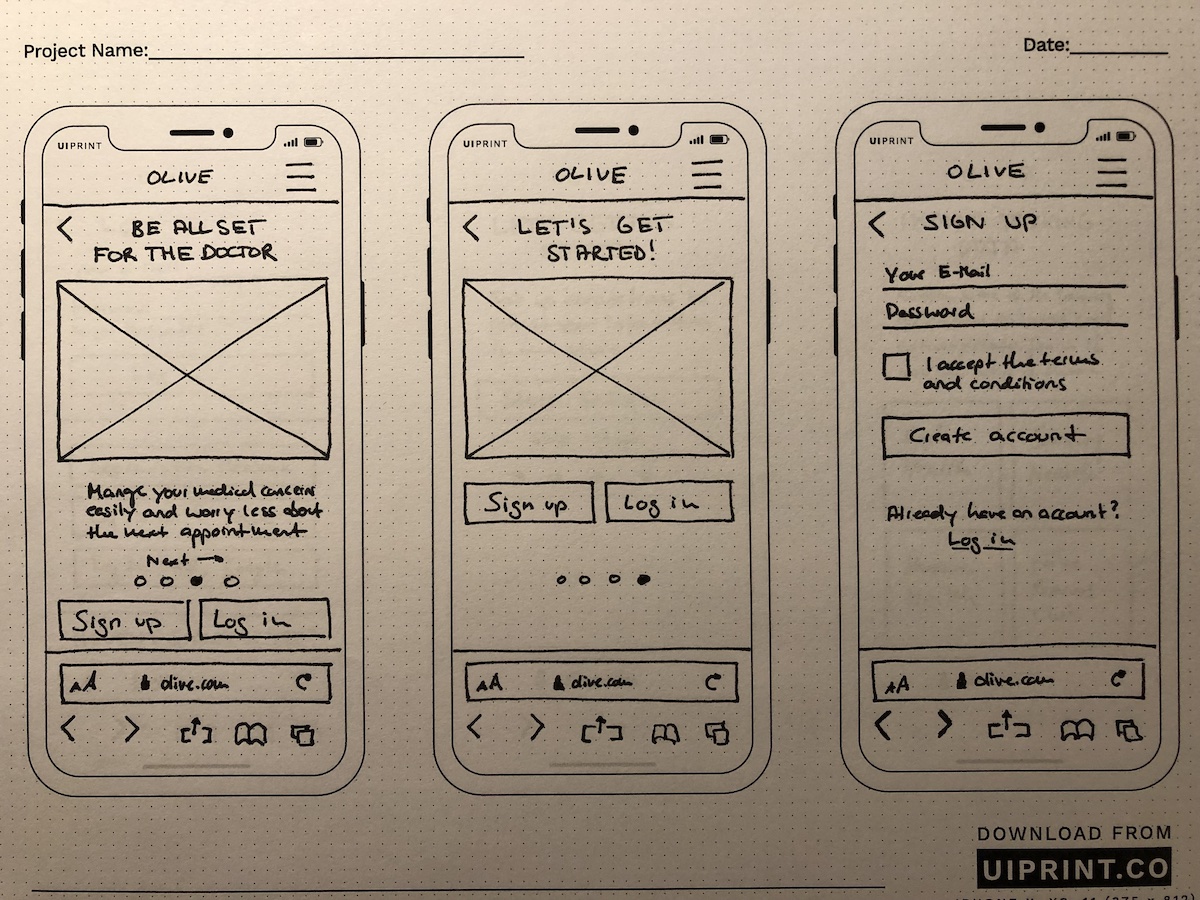 Project Name:
Date:
UIPRINT
OLIVE
BE ALL SET
FOR THE DOCTOR
Mange your medical concerns
easily and worry less about
the next appointment
Next →
Sign up
Log in
AA
olive.com
UIPRINT
OLIVE
LET'S GET
STARTED!
Sign up
Log in
AA
olive.com
UIPRINT
OLIVE
SIGN UP
Your E-Mail
Password
I accept the terms
and conditions
Create account
Already have an account?
Log in
AA
olive.com
DOWNLOAD FROM
UIPRINT.CO